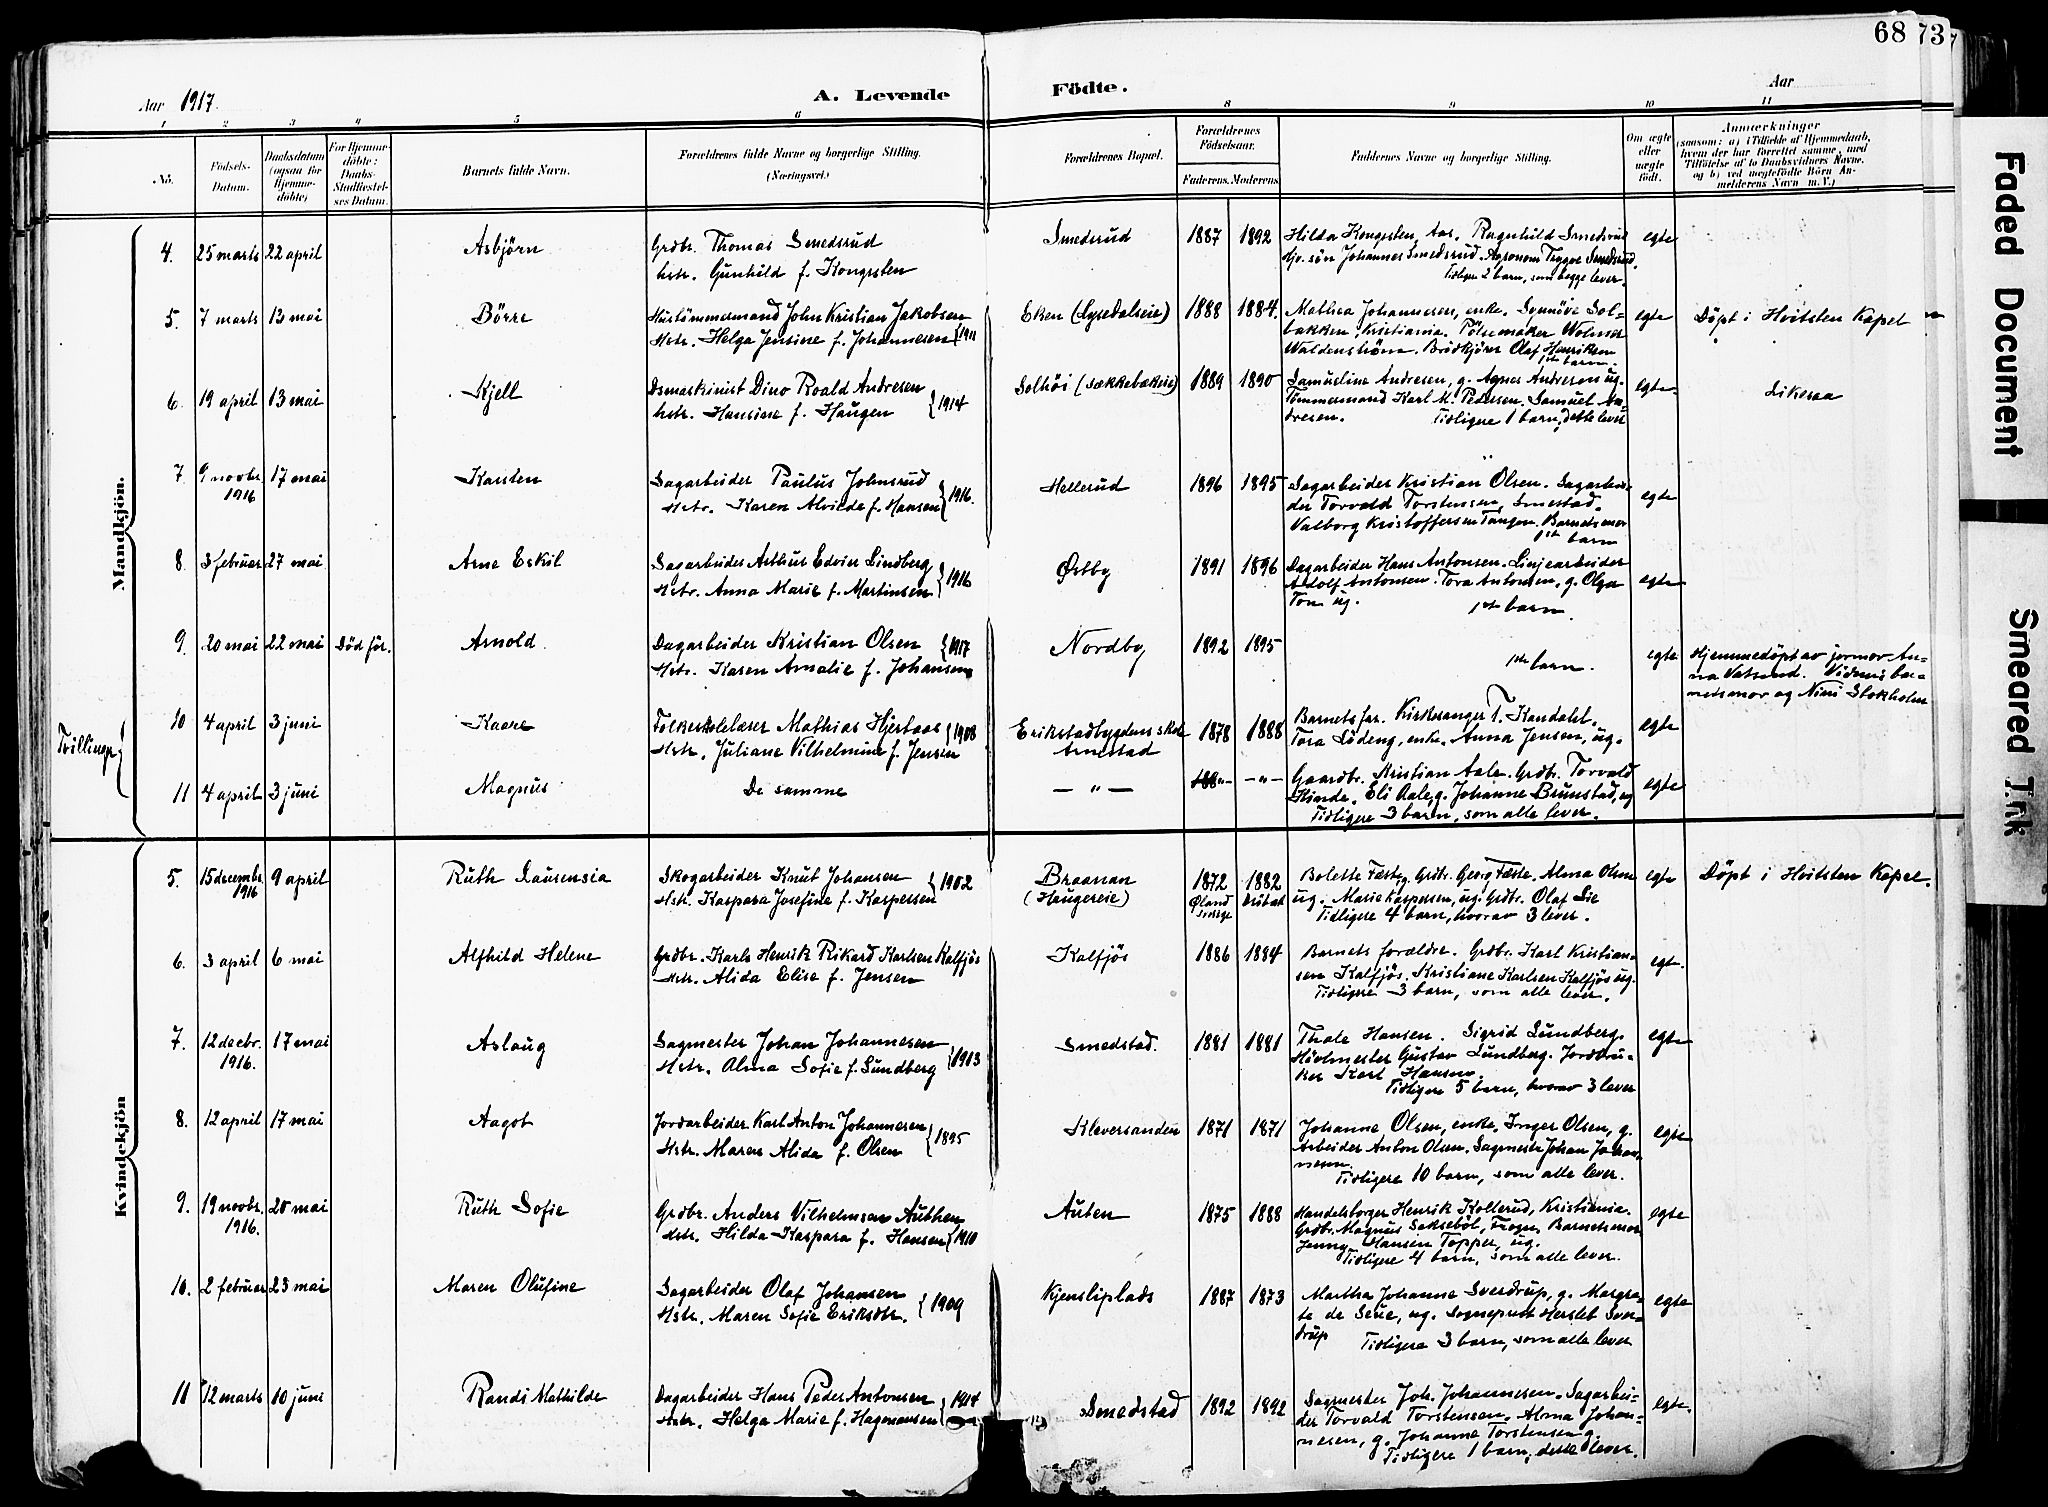 68 73
Aar 1917.
A. Levende Födte.
Aar
1 2 3 4 5 6 8 9 10 11
No.
Födsels-
Datum.
Daabsdatum
(ogsaa for
Hjemme-
döbte)
For Hjemme-
döbte:
Daabs-
Stadfæstel-
ses Datum.
Barnets fulde Navn.
Forældrenes fulde Navne og borgerlige Stilling.
(Næringsvei.)
Forældrenes Bopæl.
Forældrenes
Födselsaar.
Faderens. Moderens.
Faddernes Navne og borgerlige Stilling.
Om ægte
eller
uægte
födt.
Anmærkninger
(saasom: a) i Tilfælde af Hjemmedaab,
hvem der har forrettet samme, med
Tilföielse af to Daabsvidners Navne,
og b) ved uægtefödte Börn An-
melderens Navn m. V.)
Mandkjön.
4. 25 marts 22 april Asbjörn Grdbr. Thomas Smedsrud
Hstr. Gunhild f. Kongsten
Smedsrud 1887 1892 Hilda Kongsten, Aas. Ragnhild Smedsrud
Gjv. sön Johannes Smedsrud. Agronom Trygve Smedsrud.
Tidligere 2 barn, som begge lever.
egte
5. 7 marts 13 mai Börre Hustömmermand John Kristian Jakobsen
Hstr. Helga Jensine f. Johannesen 1911
Eken (Lysedalseie) 1888 1884. Mathea Johannesen, enke. Synnöve Sol-
bakken, Kristiania. Pölsemaker Wolmer
Waldenström. Brödkjörer Olaf Henriksen
1ste barn.
egte Döpt i Hvitsten Kapel
6. 19 april 13 mai Kjell Dsmaskinist Dino Roald Andresen
Hstr. Hansine f. Haugen 1914
Solhöi (Sækkebækeie) 1889 1890 Samueline Andresen, g. Agnes Andreson ug.
Tömmermand Karl M. Pedersen. Samuel An-
dresen. Tidligere 1 barn, dette lever
egte Likesaa
7. 9 novbr. 1916 17 mai Karsten Sagarbeider Paulus Johnsrud
Hstr. Karen Alvilde f. Hansen 1916.
Hellerud 1896 1895 Sagarbeider Kristian Olsen. Sagarbei-
der Torvald Torstensen, Smestad.
Valborg Kristoffersen Tangen. Barnets mor
1ste barn
egte
8. 3 februar 27 mai Arne Eskil Sagarbeider Arthur Edvin Lindberg
Hstr. Anna Marie f. Martinsen 1916
Østby 1891 1896 Dagarbeider Hans Antonsen. Linjearbeider
Adolf Antonsen. Tora Antonsen, g. Olga
Tom ug. 1ste barn
egte
9. 20 mai 22 mai Död för. Arnold Dagarbeider Kristian Olsen
Hstr. Karen Amalie f. Johansen 1917
Nordby 1892 1895 1ste barn. egte Hjemmedöpt av jormor An-
na Vatsend. Vidner: bar-
netsmor og Nini Stokholm
Tvillinger
10 4 april 3 juni Kaare Folkeskolelærer Mathias Hjertaas
Hstr. Juliane Vilhelmine f. Jensen 1908
Erikstadbygdens skole
Arnestad
1878 1888 Barnets far. Kirkesanger T. Kandahl.
Tora Lödeng, enke. Anna Jensen, ug.
egte
11 4 april 3 juni Magnus De samme — " — — " — Gaardbr. Kristian Aale. Grdbr. Torvald
Hinde. Eli Aale, g. Johanne Brunstad, ug
Tidligere 3 barn, som alle lever.
egte
Kvindekjön
5. 15 decembr. 1916 9 april Ruth Laurensia Skogarbeider Knut Johansen
Hstr. Kaspara Josefine f. Kaspersen 1902
Braanan
(Haugereie)
1872 Øland Sverige 1882 Drøbak Bolette Fæste, Grdbr. Georg Fæste. Alma Olsen
ug. Marie Kaspersen, ug. Grdbr. Olaf Lie
Tidligere 4 barn, hvorav 3 lever.
egte Döpt i Hvitsten Kapel.
6. 3 april 6 mai Alfhild Helene Grdbr. Karls Henrik Rikard Karlsen Kalfjös
Hstr. Alida Elise f. Jensen
Kalfjös 1886 1884 Barnets forældre. Grdbr. Karl Kristian-
sen Kalfjös. Kristiane Karlsen Kalfjös ug.
Tidligere 3 barn, som alle lever.
egte.
7. 12 decbr. 1916. 17 mai Aslaug Sagmester Johan Johannesen
Hstr. Alma Sofie f. Lundberg 1913
Smedstad. 1881 1881 Thale Hansen. Sigrid Lundberg.
Hövlmester Gustav Lundberg. Jordbru-
ker Karl Hansen.
Tidligere 5 barn, hvorav 3 lever
egte
8. 12 april 17 mai Aagot Jordarbeider Karl Anton Johannesen
Hstr. Maren Alida f. Olsen 1895
Kleversanden 1871 1871 Johanne Olsen, enke. Inger Olsen, g.
Arbeider Anton Olsen. Sagmester Johan Johan-
nesen
Tidligere 10 barn, som alle lever.
egte
9. 19 novbr. 1916. 20 mai Ruth Sofie Grdbr. Anders Vilhelmsen Authen
Hstr. Hilda Kaspara f. Hansen 1910
Auten 1875 1888 Handelsborger Henrik Kollerud, Kristiania.
Grdbr. Magnus Sakseböl, Frogn. Barnets mor
Jenny Hansen Topper, ug.
Tidligere 4 barn, som alle lever.
egte
10. 2 februar 23 mai Maren Olufine Sagarbeider Olaf Johansen
Hstr. Maren Sofie Eriksdtr. 1909
Kjensliplads 1887 1873 Martha Johanne Sverdrup, g. Margre-
te de Seue, ug. Sogneprest Herslet Sver-
drup
Tidligere 3 barn, som alle lever
egte
11 12 marts 10 juni Randi Mathilde Dagarbeider Hans Peder Antonsen
Hstr. Helga Marie f. Hagmansen 1914
Smedstad 1892 1892 Sagmester Joh. Johannesen. Sagarbei-
der Torvald Torstensen. Alma Johan-
nesen, g. Johanne Torstensen g.
Tidligere 1 barn, dette lever.
egte.
Faded Document
Smeared Ink